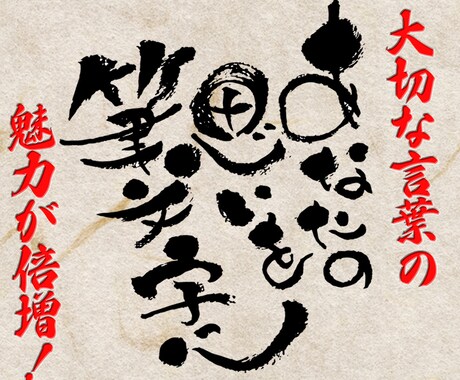 大切な言葉の
あなたの
思いを
筆文字に
魅力が倍増！